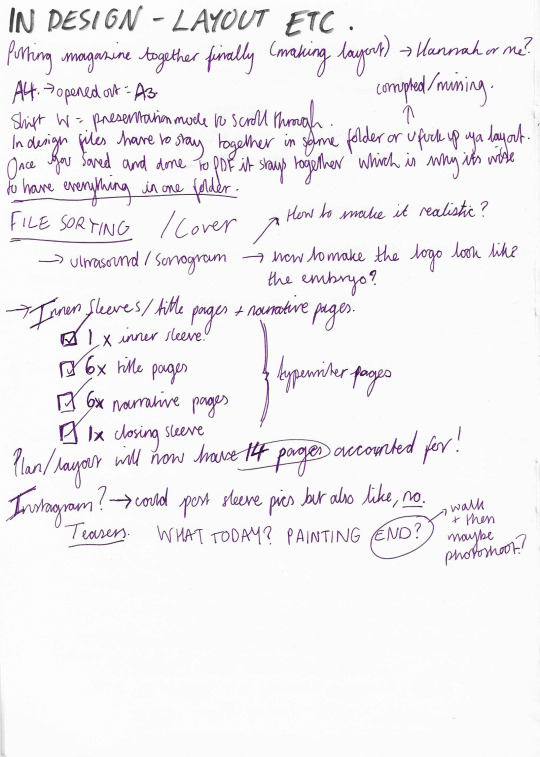 IN DESIGN - LAYOUT ETC.
Putting magazine together finally (making layout) → Hannah or me?
A4. → opened out = A3
corrupted/missing.
Shift W = presentation mode to scroll through.
In design files have to stay together in same folder or u fuck up ya layout.
Once you saved and done to PDF it stays together which is why its wise
to have everything in one folder.
FILE SORTING / Cover
How to make it realistic?
→ ultrasound / sonogram → how to make the logo look like
the embryo?
→ Inner sleeves / title pages + narrative pages.
1 x inner sleeve.
6x title pages
typewriter pages
6x narrative pages
1x closing sleeve
Plan/layout will now have 14 pages accounted for!
Instagram? → could post sleeve pics but also like, no.
Teasers. WHAT TODAY? PAINTING END?
walk
+ then
maybe
photoshoot?